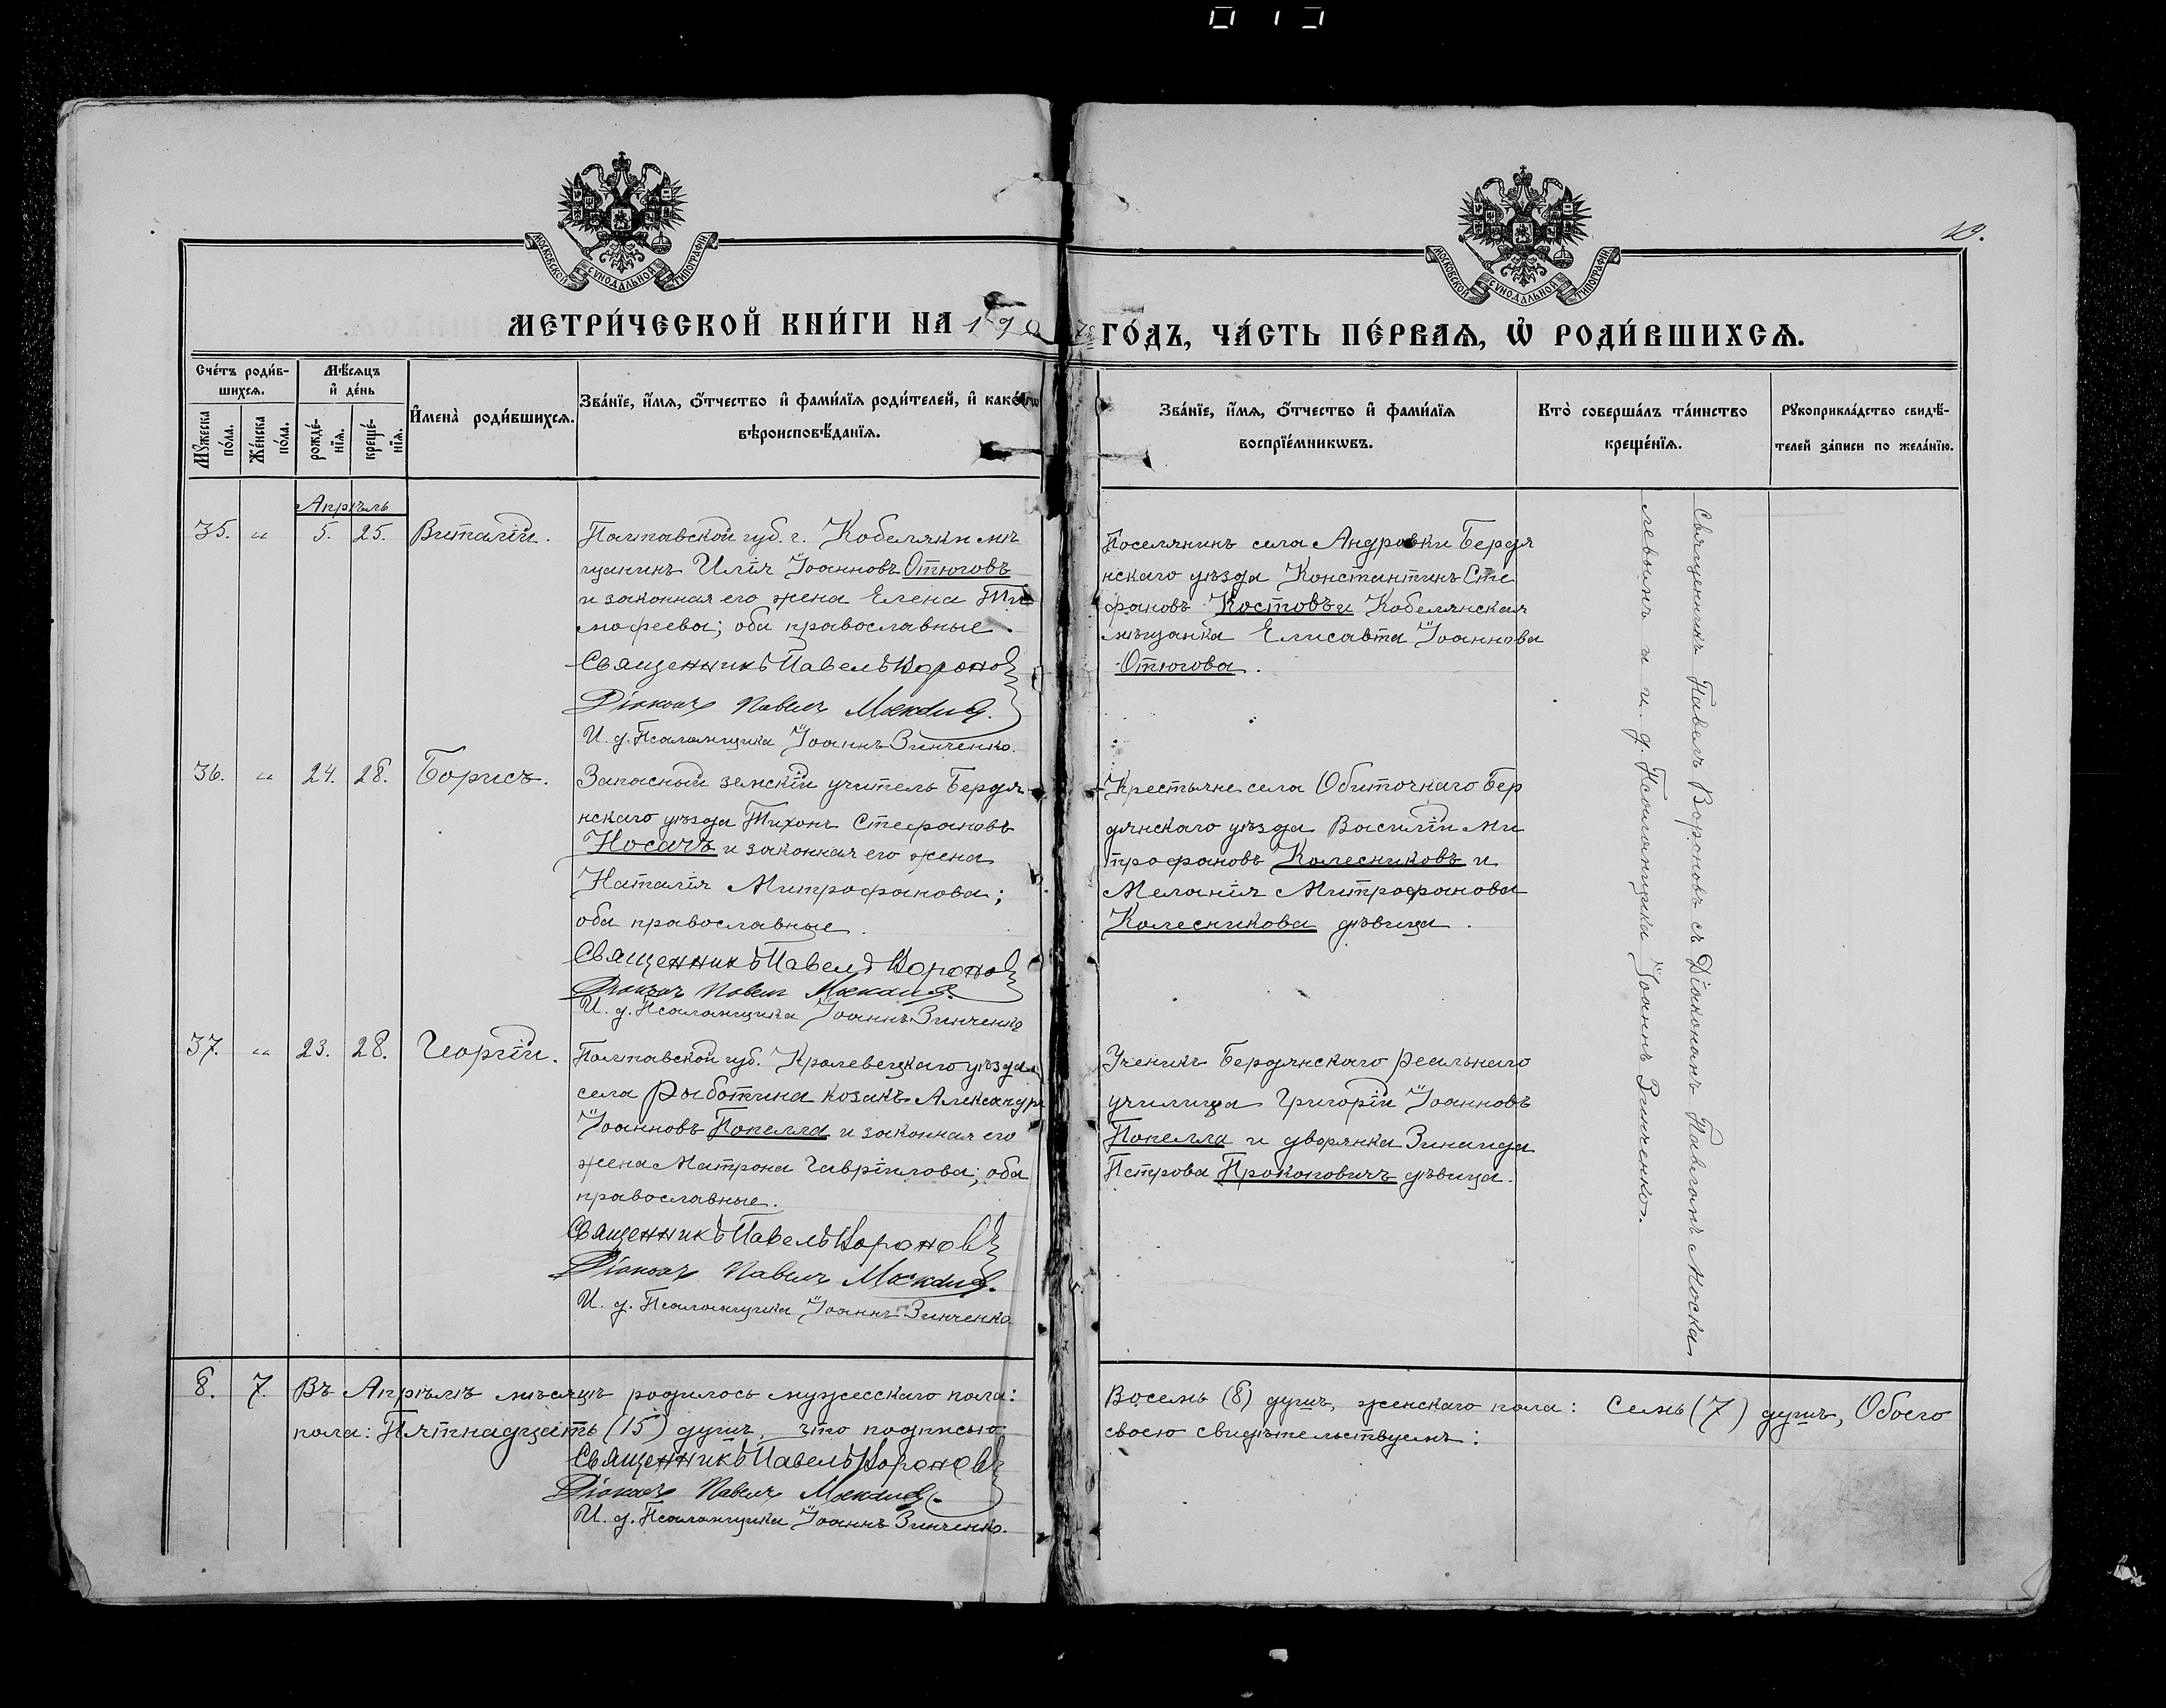 13.
МОСКОВСКОЙ СѴНОДАЛЬНОЙ ТИПОГРАФІИ
МОСКОВСКОЙ СѴНОДАЛЬНОЙ ТИПОГРАФІИ
МЕТРИ́ЧЕСКОЙ КНИ́ГИ НА 1907 ГО́ДЪ, ЧА́СТЬ ПЕ́РВАѦ, Ѿ РОДИ́ВШИХСѦ.
Сче́тъ роди́в-
шихсѧ.
Мꙋ́жеска
по́ла.
Же́нска
по́ла.
Мѣ́сѧцъ
и҆ де́нь
рожде́-
нїѧ.
креще́-
нїѧ.
И҆мена̀ роди́вшихсѧ.
Зва́нїе, и҆́мѧ, ѻ҆́тчество и҆ фами́лїѧ роди́телей, и҆ како́гѡ
вѣроисповѣ́данїѧ.
Зва́нїе, и҆́мѧ, ѻ҆́тчество и҆ фами́лїѧ
воспрїе́мникѡвъ.
Кто̀ соверша́лъ та́инство
креще́нїѧ.
Рꙋкоприкла́дство свидѣ́-
телей за́писи по жела́нїю.
Апрѣль
35. " 5. 25. Виталій.
Полтавской губ. г. Кобеляки мѣ
щанинъ Илія Іоанновъ Отюговъ
и законная его жена Елена Ти
мофеева; оба православные.
Священникъ Павелъ Вороновъ
Діаконъ Павелъ Москал
И. д. Псаломщика Іоаннъ Зинченко.
Поселянинъ села Андровки Бердя
нскаго уѣзда Константинъ Сте
фановъ Костовъ и Кобелянская
мѣщанка Елисавта Іоаннова
Отюгова.
36. " 24. 28. Борисъ.
Запасный земскій учитель Бердя
нскаго уѣзда Тихонъ Стефановъ
Носачъ и законная его жена
Наталія Митрофанова;
оба православные.
Священникъ Павелъ Вороновъ
Діаконъ Павелъ Москал
И. д. Псаломщика Іоаннъ Зинченко
Крестьяне села Обиточнаго Бер
дянскаго уѣзда Василій Ми
трофановъ Колесниковъ и
Меланія Митрофанова
Колесникова дѣвица.
37. " 23. 28. Георгій.
Полтавской губ. Кролевецкаго уѣзда
села Рыботина козакъ Александръ
Іоанновъ Попелла и законная его
жена Матрона Гавріилова; оба
православные.
Священникъ Павелъ Вороновъ
Діаконъ Павелъ Москал
И. д. Псаломщика Іоаннъ Зинченко
Ученикъ Бердянскаго реальнаго
училища Григорій Іоанновъ
Попелла и дворянка Зинаида
Петрова Прокоповичъ дѣвица.
Священникъ Павелъ Вороновъ съ Діакономъ Павломъ Моска
левымъ и и. д. Псаломщика Іоаннъ Зинченко.
8. 7. Въ Апрѣлѣ мѣсяцѣ родилось мужесскаго пола: Восемь (8) душъ, женскаго пола: Семь (7) душъ, Обоего
пола: Пятнадцать (15) душъ, что подписью своею свидѣтельствуемъ:
Священникъ Павелъ Вороновъ
Діаконъ Павелъ Москал
И. д. Псаломщика Іоаннъ Зинченко.